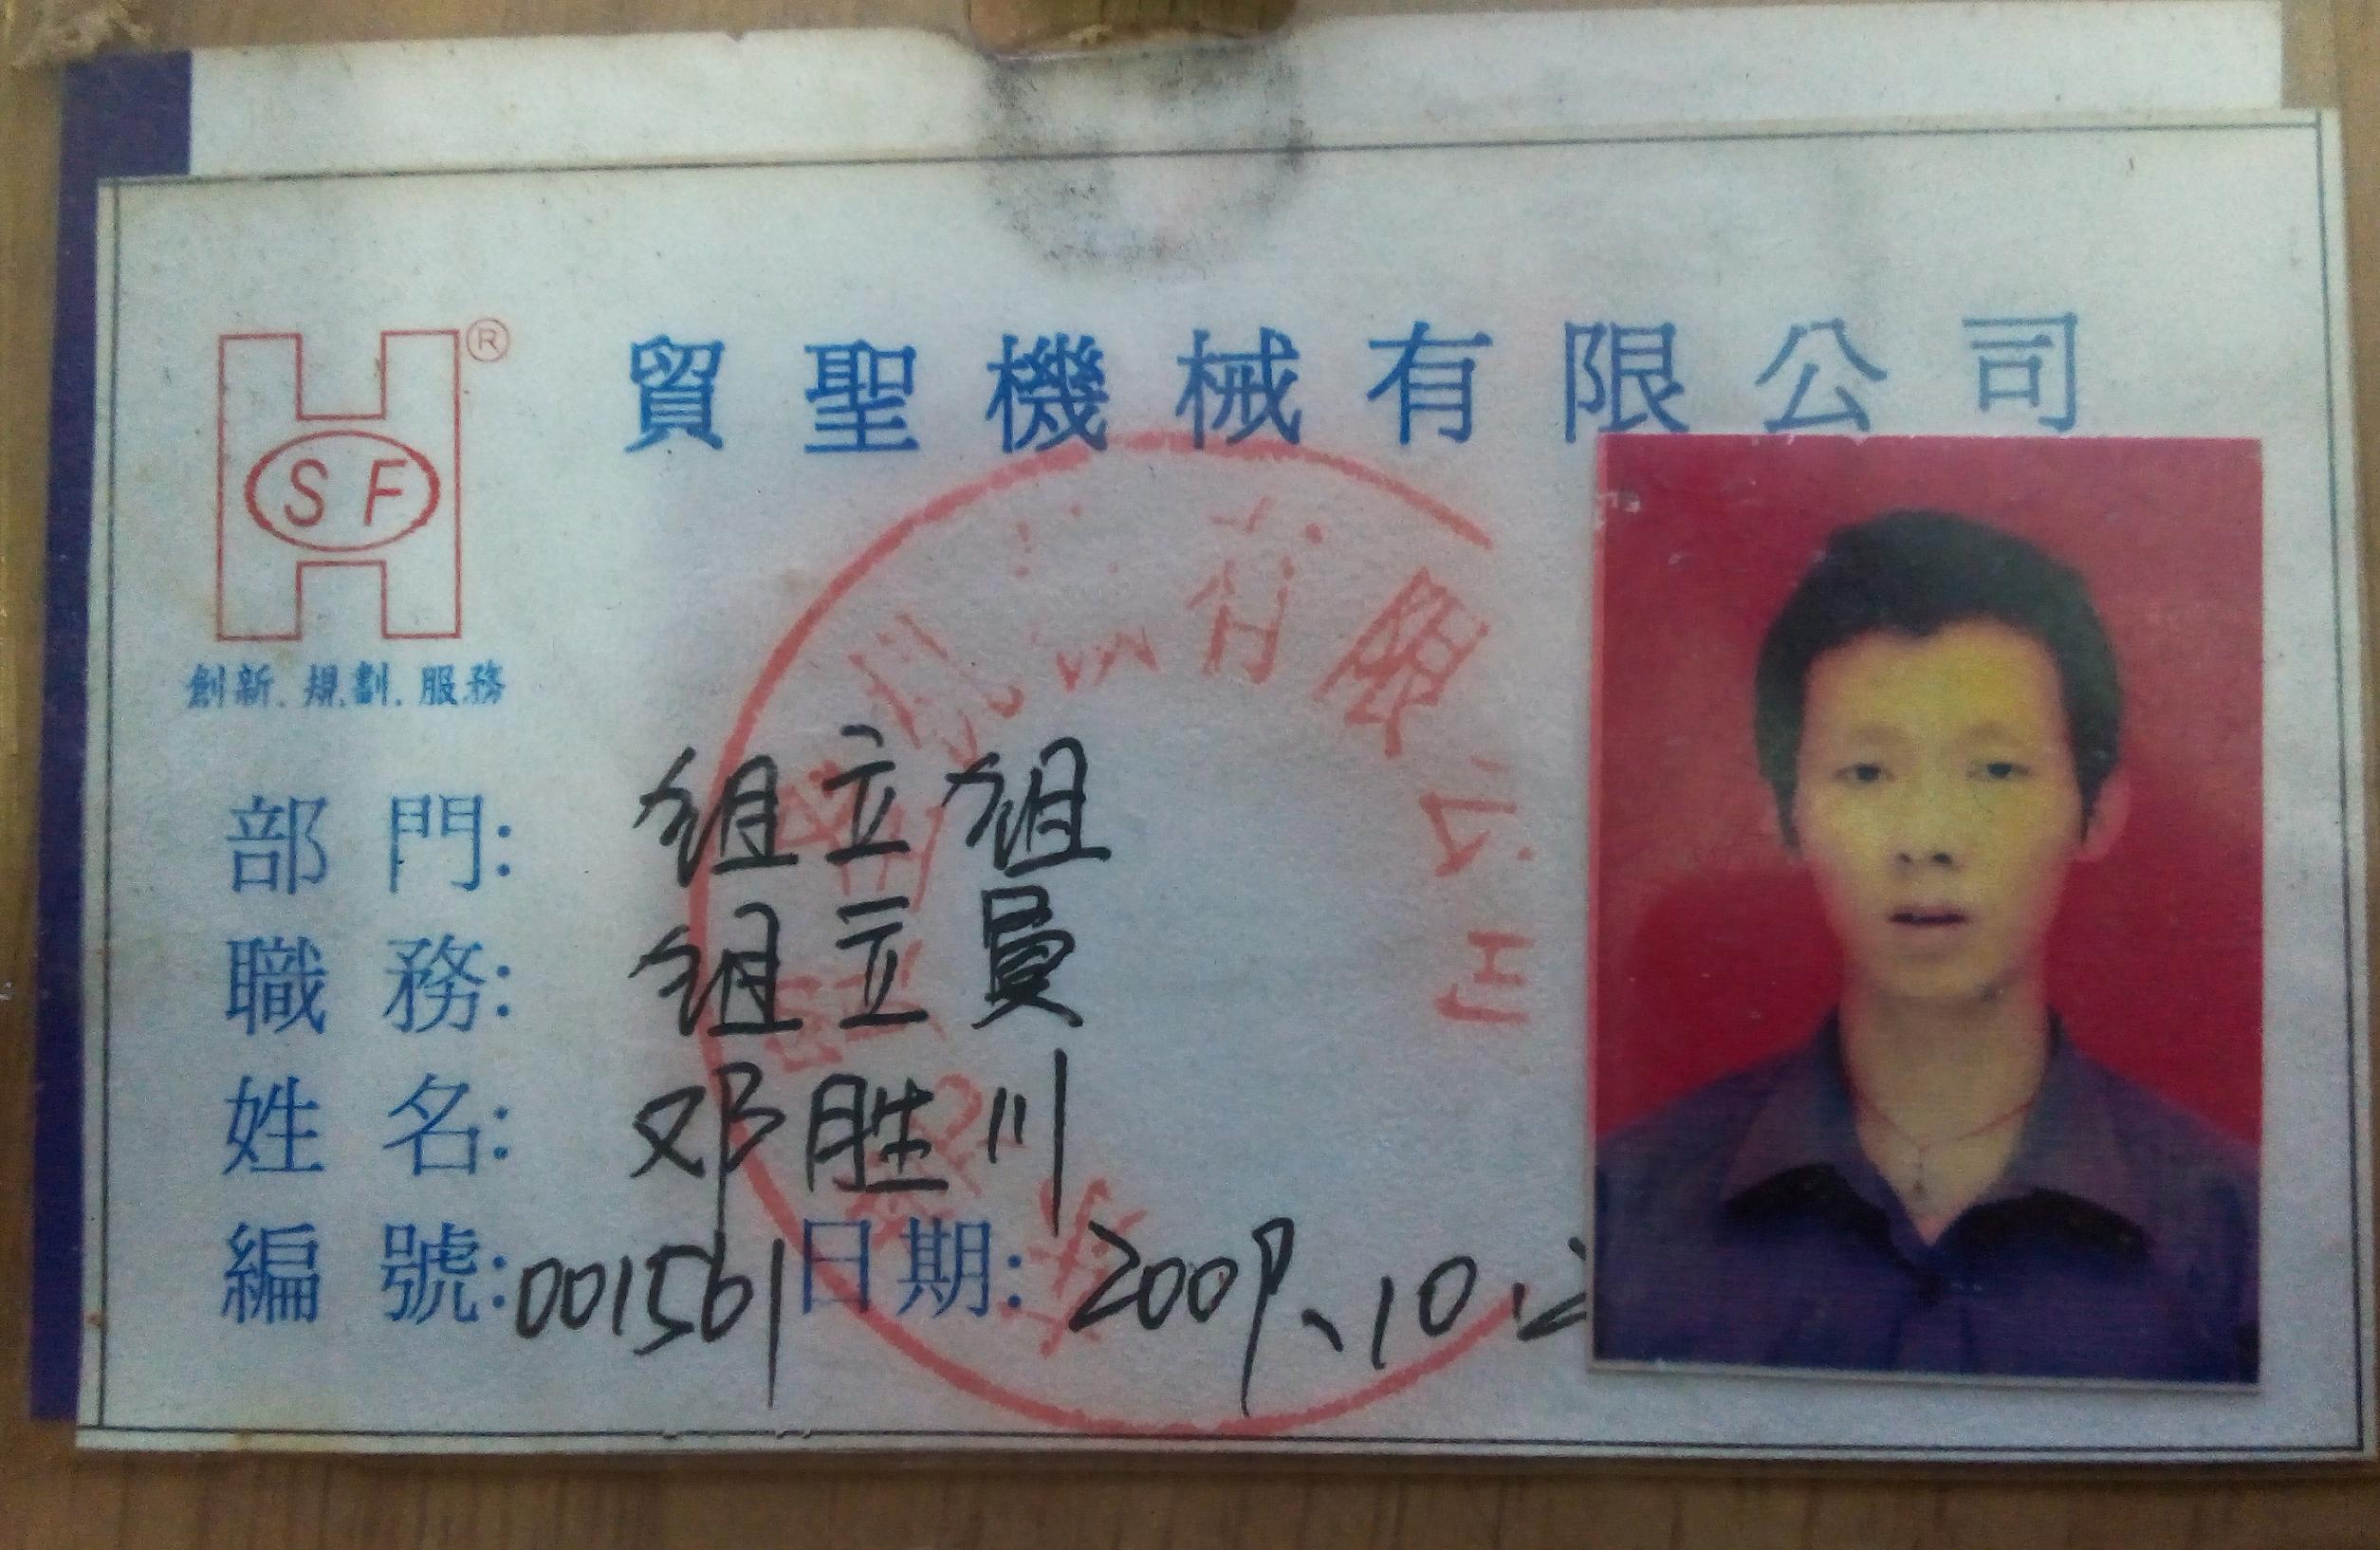 貿聖機械有限公司
H®
SF
創新.規劃.服務
部門:組立組
職務:組立員
姓名:邓胜川
編號:001561 日期:2009.10.2
有限公司